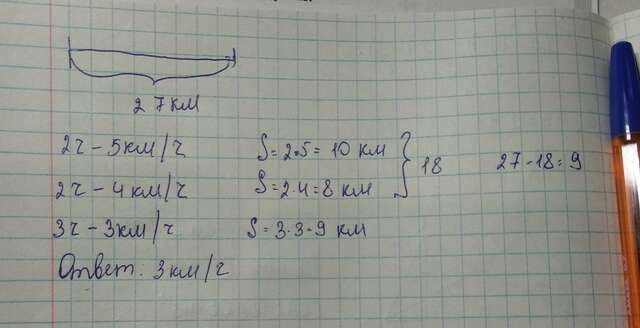 27 км
2ч - 5км/ч S = 2·5 = 10 км } 18 27 - 18 = 9
2ч - 4км/ч S = 2·4 = 8 км
3ч - 3км/ч S = 3·3 = 9 км
Ответ: 3 км/ч